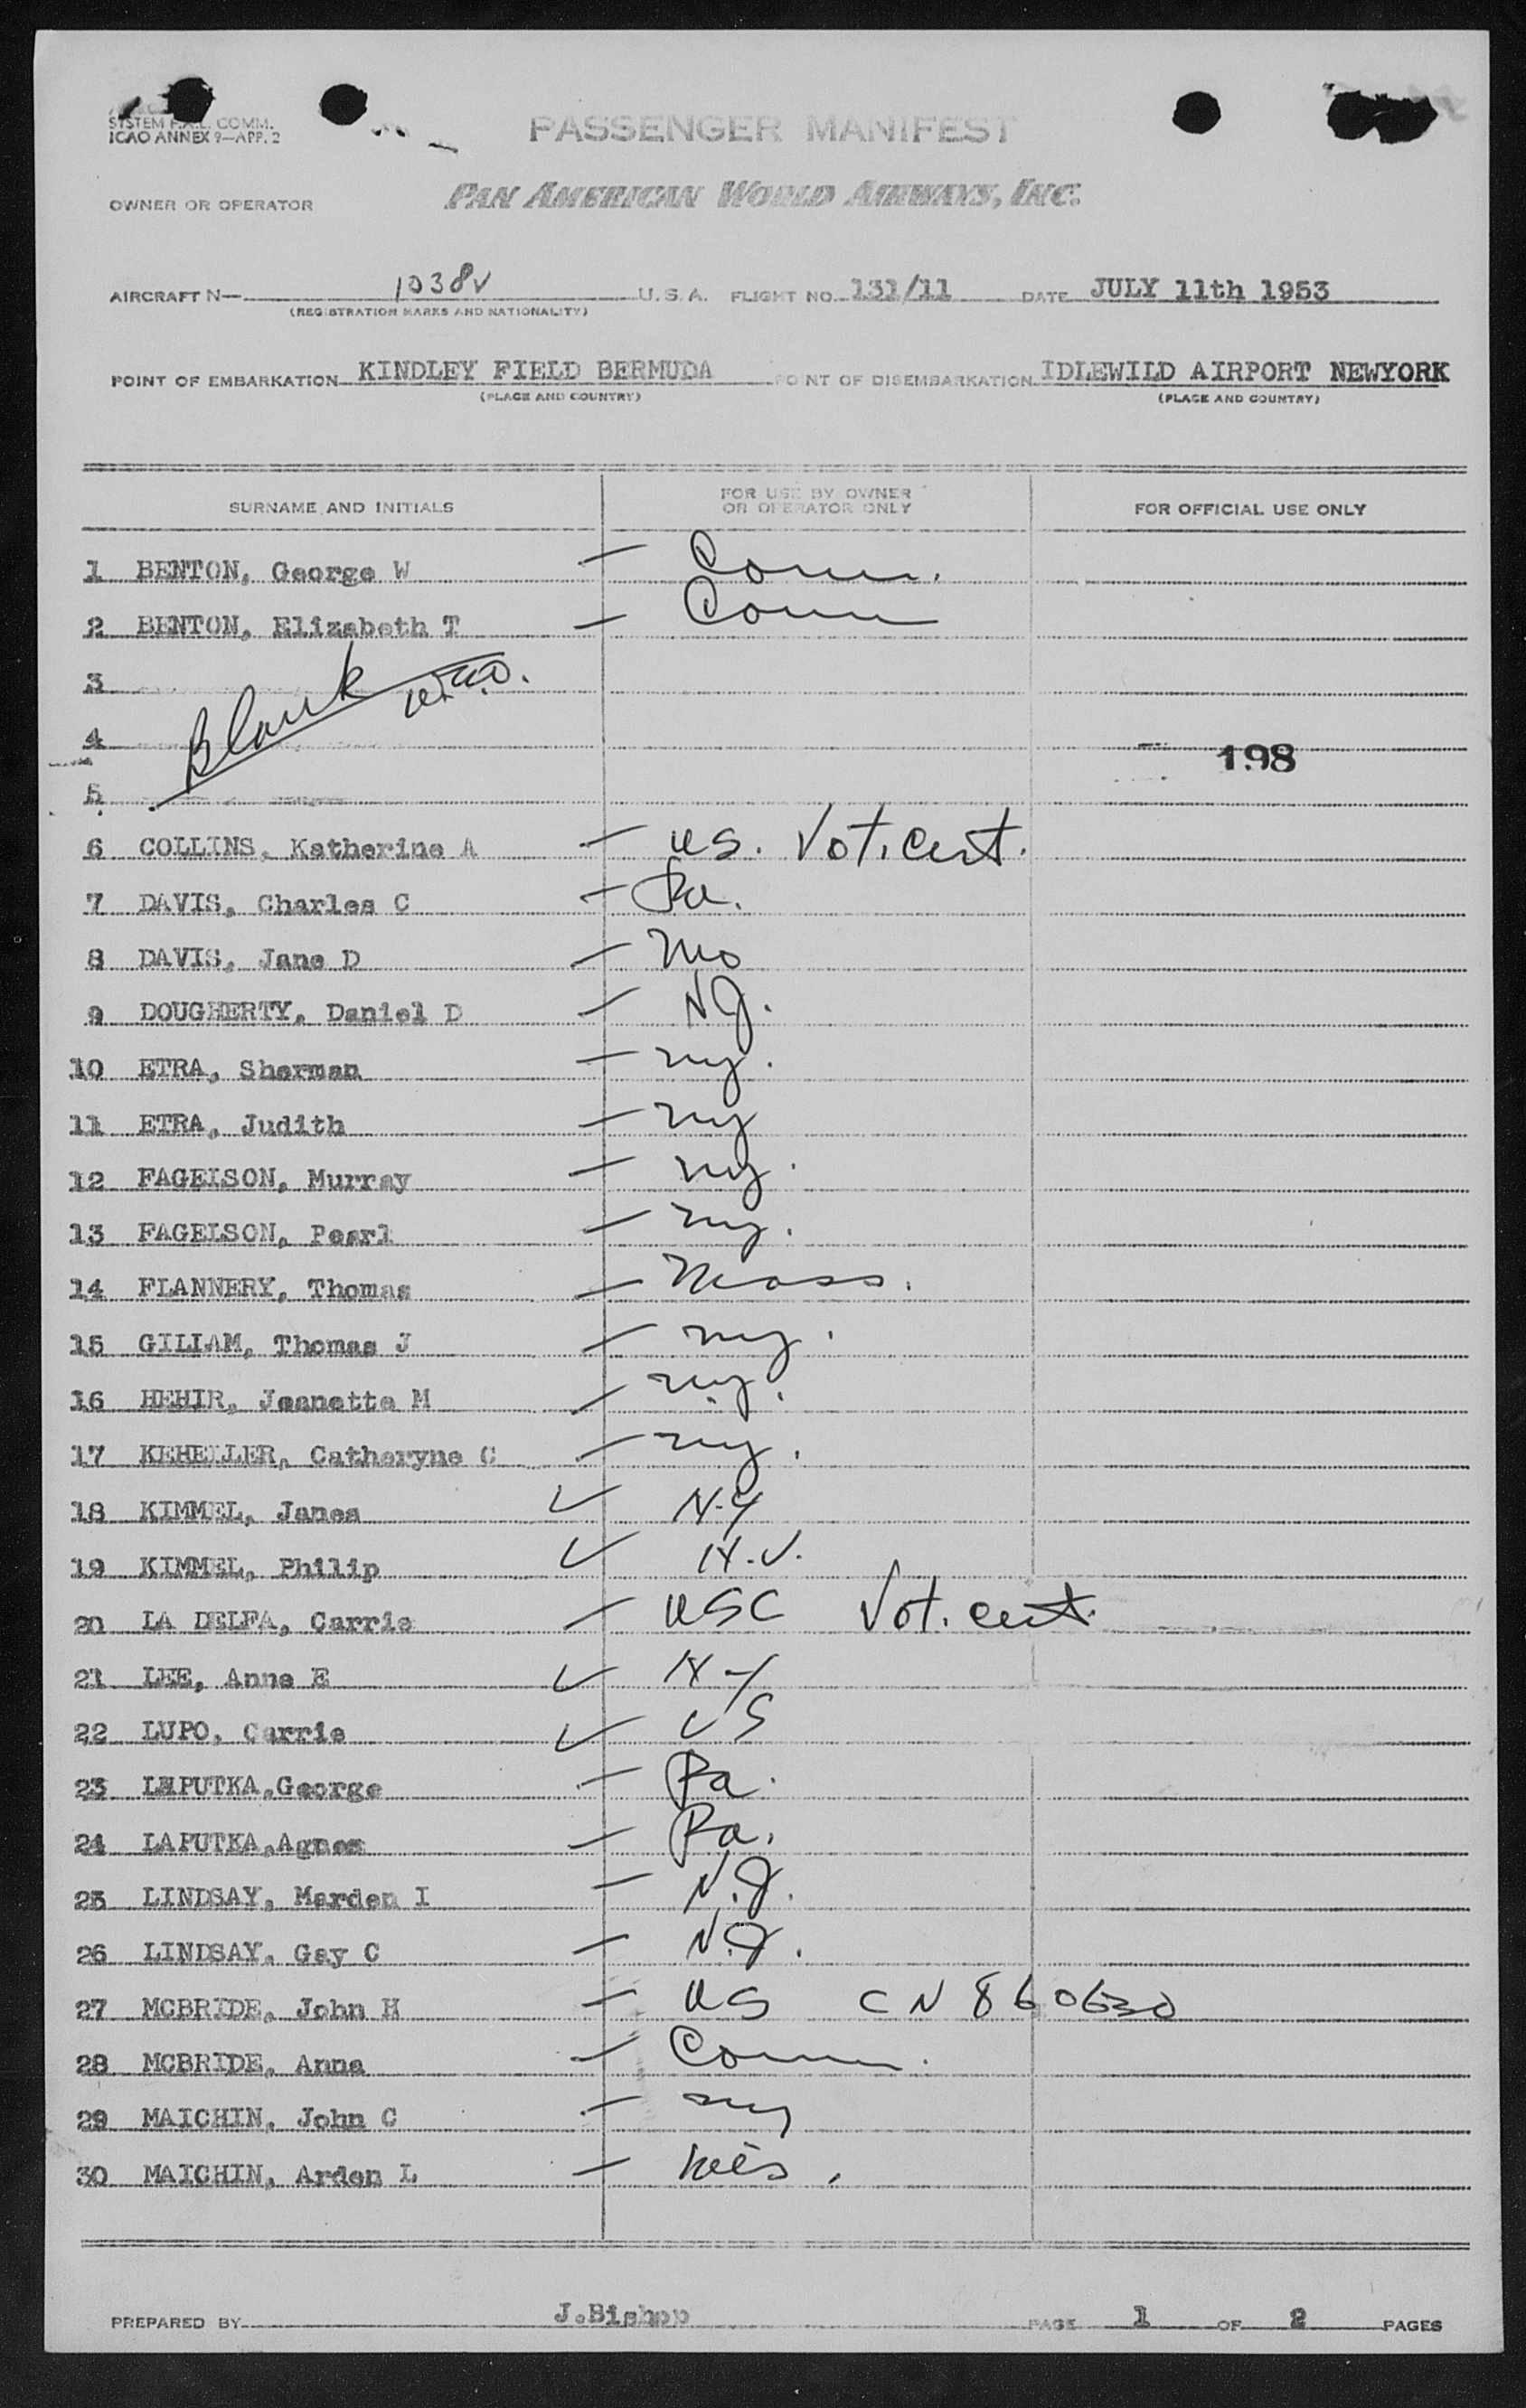 SYSTEM F.A.L. COMM.
ICAO ANNEX 9—APP. 2
PASSENGER MANIFEST
OWNER OR OPERATOR PAN AMERICAN WORLD AIRWAYS, INC.
AIRCRAFT N— 1038V U.S.A. FLIGHT NO. 131/11 DATE JULY 11th 1953
(REGISTRATION MARKS AND NATIONALITY)
POINT OF EMBARKATION KINDLEY FIELD BERMUDA POINT OF DISEMBARKATION IDLEWILD AIRPORT NEWYORK
(PLACE AND COUNTRY) (PLACE AND COUNTRY)
SURNAME AND INITIALS FOR USE BY OWNER OR OPERATOR ONLY FOR OFFICIAL USE ONLY
1 BENTON, George W — Conn.
2 BENTON, Elizabeth T — Conn
3
Blank
4
198
5
6 COLLINS, Katherine A — US. Vot. Cert.
7 DAVIS, Charles C — Pa.
8 DAVIS, Jane D — Mo
9 DOUGHERTY, Daniel D — NJ.
10 ETRA, Sherman — ny.
11 ETRA, Judith — ny
12 FAGELSON, Murray — ny.
13 FAGELSON, Pearl — ny.
14 FLANNERY, Thomas — Mass.
15 GILLAM, Thomas J — ny.
16 HEHIR, Jeanette M — ny.
17 KEHELLER, Catheryne C — ny.
18 KIMMEL, Janes ✓ N.Y
19 KIMMEL, Philip ✓ N.Y.
20 LA DELFA, Carrie — USC Vot. cert.
21 LEE, Anna E ✓ N Y
22 LUPO, Carrie ✓ US
23 LAPUTKA, George — Pa.
24 LAPUTKA, Agnes — Pa.
25 LINDSAY, Marden I — N.J.
26 LINDSAY, Gay C — N.J.
27 MCBRIDE, John H — US CN 860630
28 MCBRIDE, Anna — Conn.
29 MAICHIN, John C — ny
30 MAICHIN, Arden L — Wis.
PREPARED BY J.Bishop PAGE 1 OF 2 PAGES